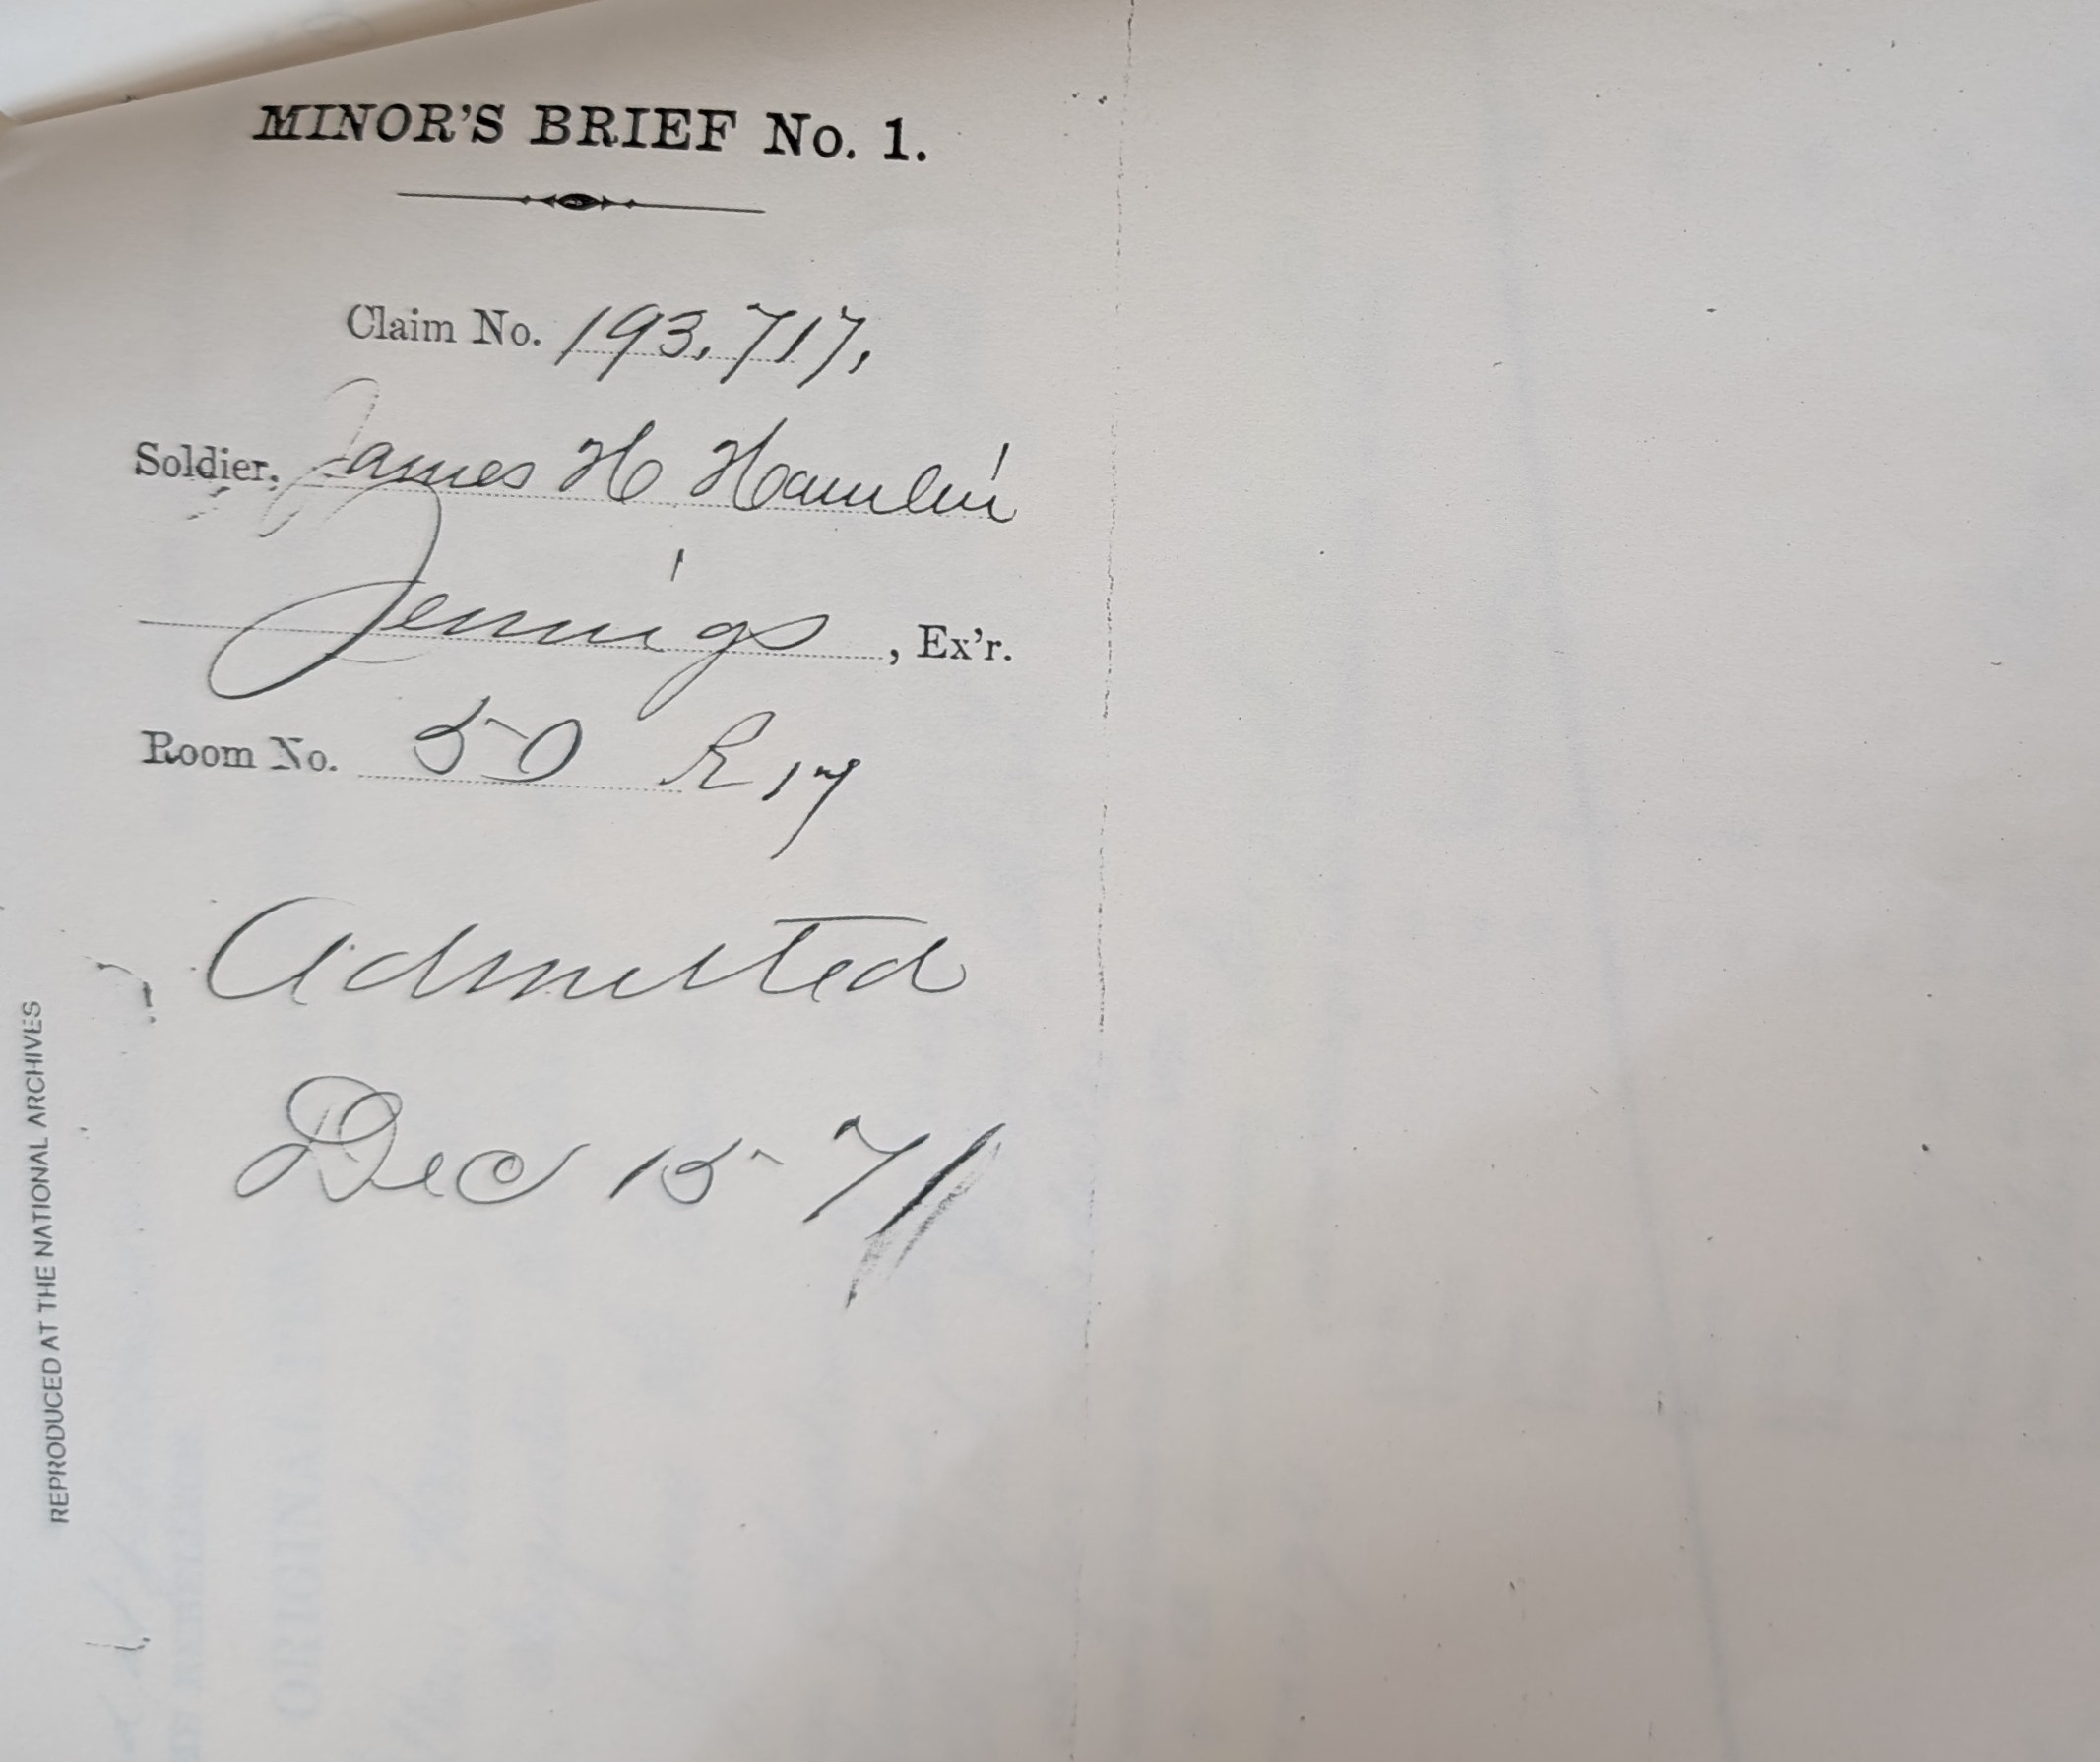 MINOR'S BRIEF No. 1.
Claim No. 193,717,
Soldier, James H Hamlin
Jennings, Ex'r.
Room No. 50 R 17
Admitted
Dec 15 71
REPRODUCED AT THE NATIONAL ARCHIVES
ORIGINAL